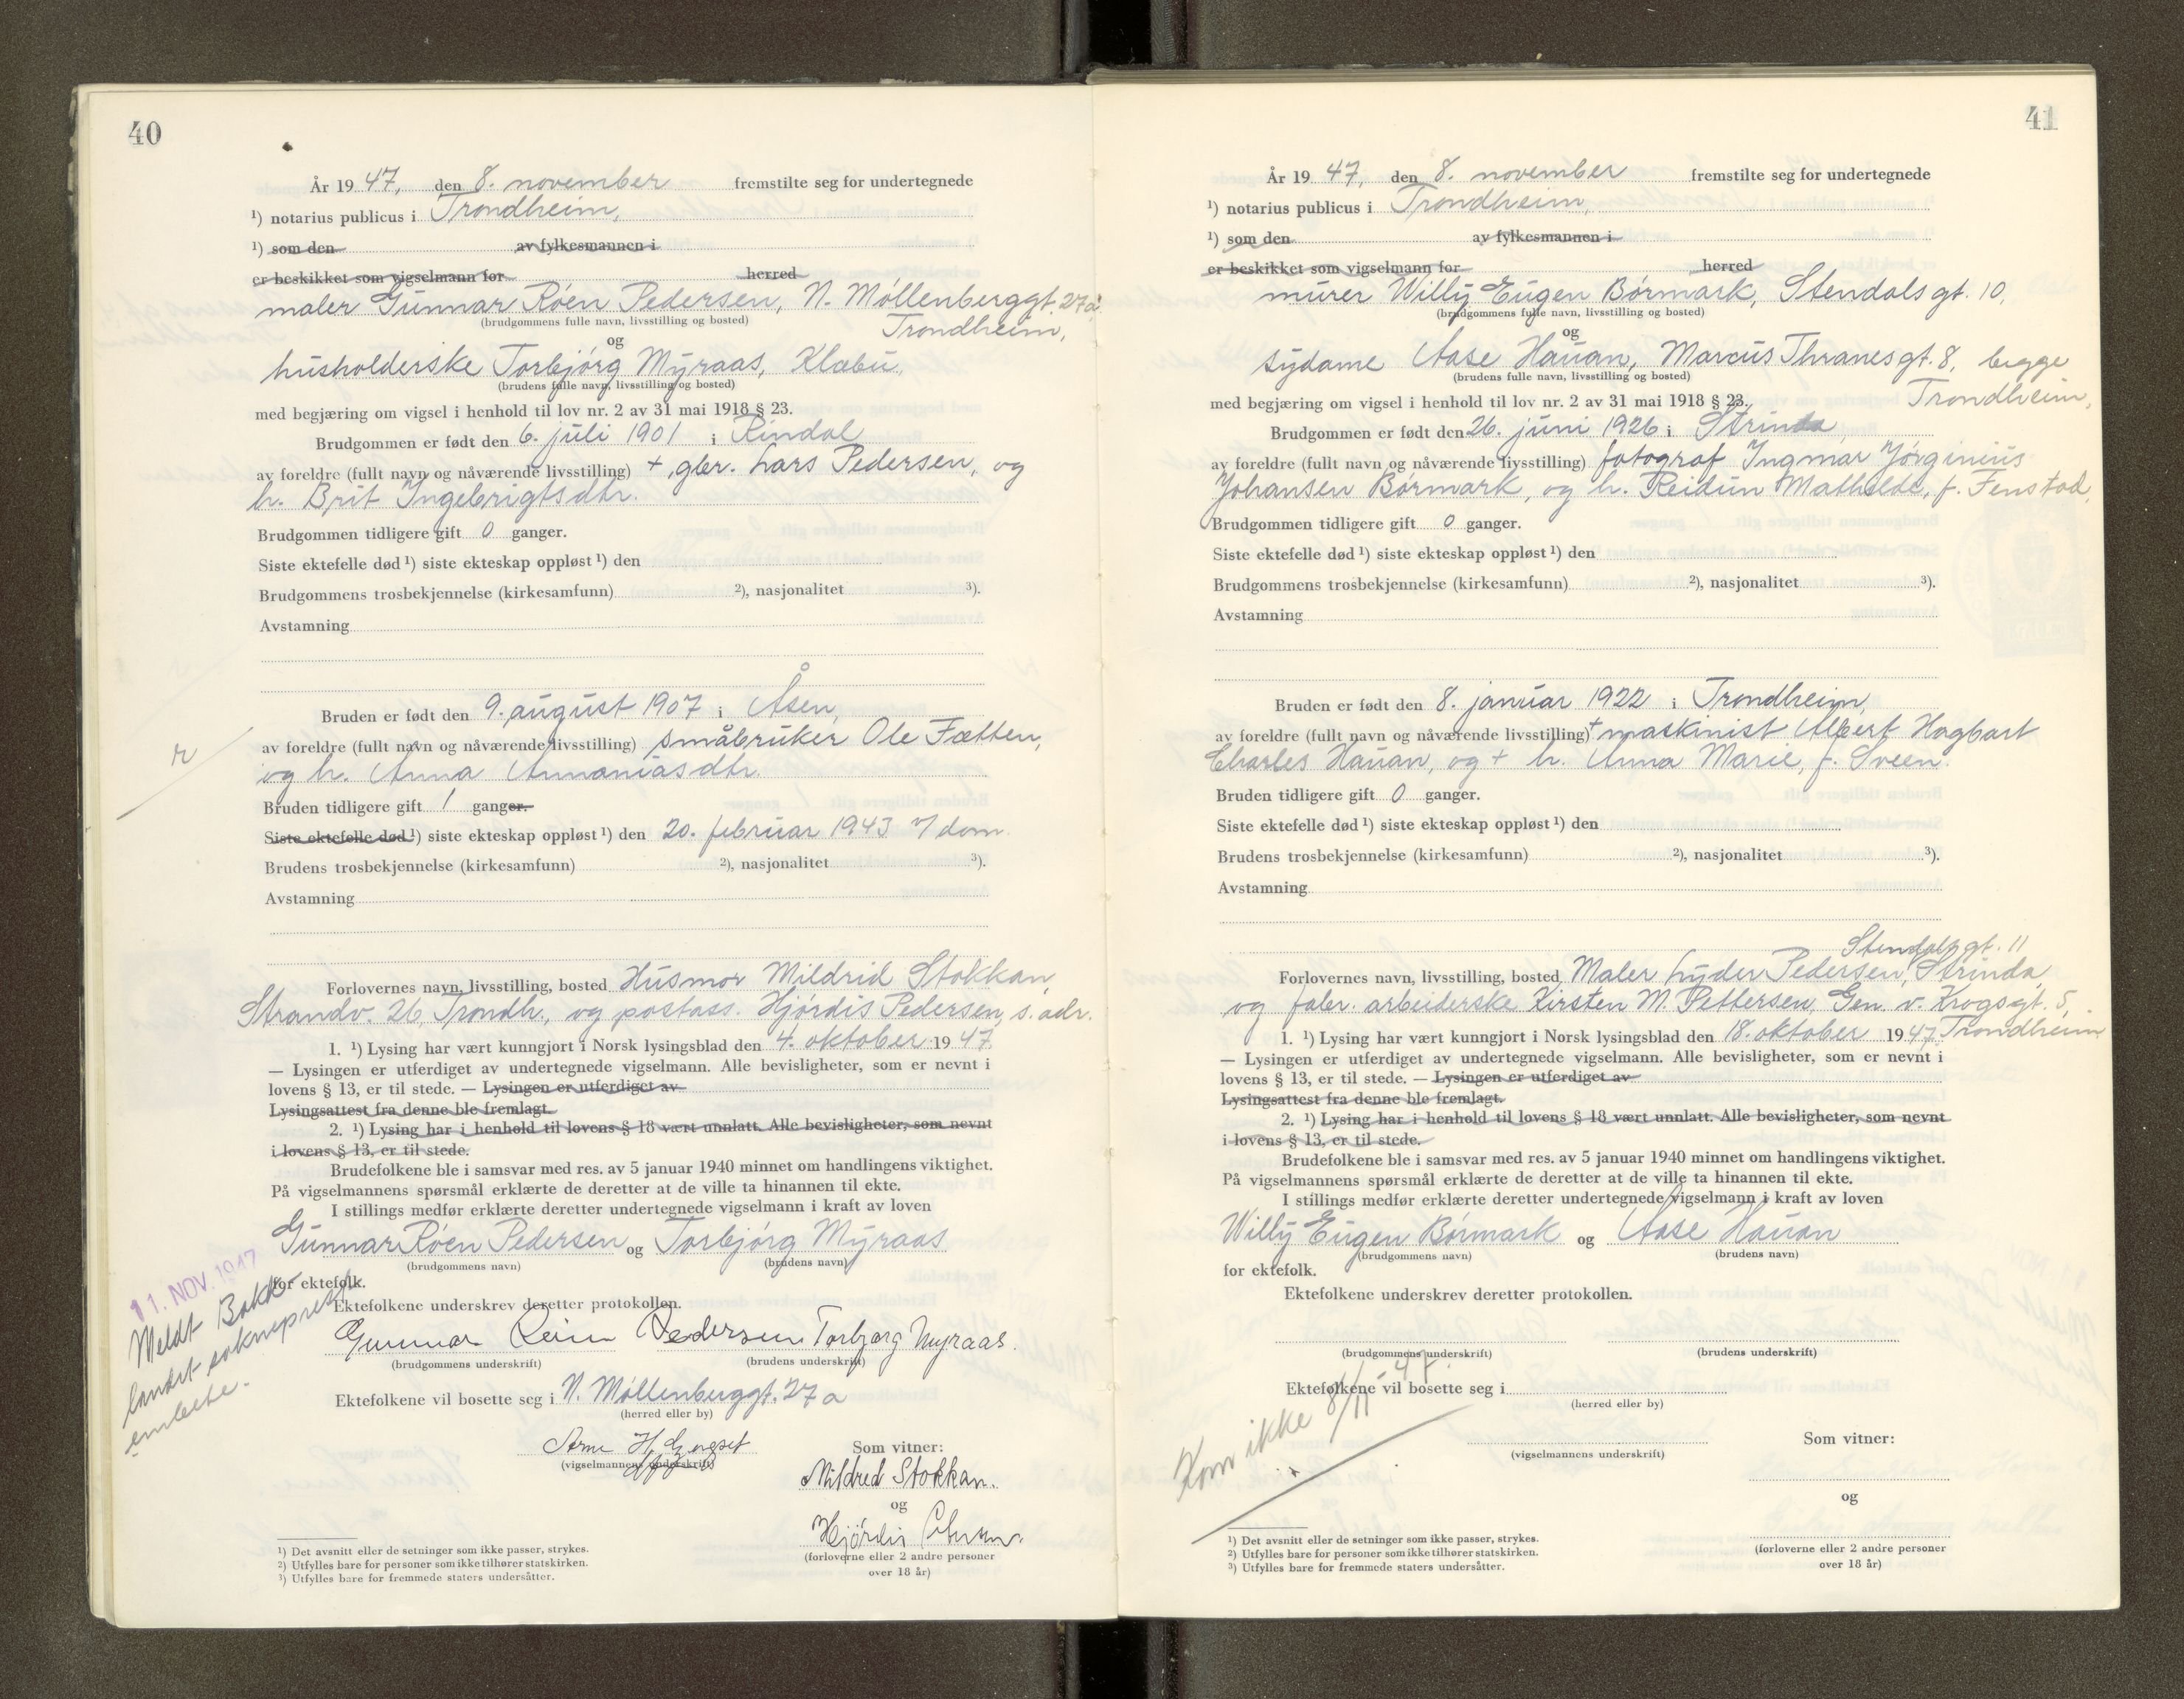 40
År 19 47, den 8. november fremstilte seg for undertegnede
¹) notarius publicus i Trondheim,
¹) som den av fylkesmannen i
er beskikket som vigselmann for herred
maler Gunnar Róen Pedersen, N. Móllenberggt. 27a
(brudgommens fulle navn, livsstilling og bosted)
Trondheim,
og
husholderske Torbjórg Myraas, Klæbu,
(brudens fulle navn, livsstilling og bosted)
med begjæring om vigsel i henhold til lov nr. 2 av 31 mai 1918 § 23.
Brudgommen er født den 6. juli 1901 i Rindal
av foreldre (fullt navn og nåværende livsstilling) +, gbr. Lars Pedersen, og
h. Brit Ingebrigtsdtr.
Brudgommen tidligere gift 0 ganger.
Siste ektefelle død ¹) siste ekteskap oppløst ¹) den
Brudgommens trosbekjennelse (kirkesamfunn) ²), nasjonalitet ³).
Avstamning
Bruden er født den 9. august 1907 i Åsen,
av foreldre (fullt navn og nåværende livsstilling) småbruker Ole Fætten,
og h. Anna Annaniasdtr.
Bruden tidligere gift 1 ganger.
Siste ektefelle død ¹) siste ekteskap oppløst ¹) den 20. februar 1943 v/ dom.
Brudens trosbekjennelse (kirkesamfunn) ²), nasjonalitet ³).
Avstamning
Forlovernes navn, livsstilling, bosted Husmor Mildrid Stokkan,
Strandv. 26, Trondh., og postass. Hjórdis Pedersen, s. adr.
1. ¹) Lysing har vært kunngjort i Norsk lysingsblad den 4. oktober 19 47.
— Lysingen er utferdiget av undertegnede vigselmann. Alle bevisligheter, som er nevnt i
lovens § 13, er til stede. — Lysingen er utferdiget av
Lysingsattest fra denne ble fremlagt.
2. ¹) Lysing har i henhold til lovens § 18 vært unnlatt. Alle bevisligheter, som nevnt
i lovens § 13, er til stede.
Brudefolkene ble i samsvar med res. av 5 januar 1940 minnet om handlingens viktighet.
På vigselmannens spørsmål erklærte de deretter at de ville ta hinannen til ekte.
I stillings medfør erklærte deretter undertegnede vigselmann i kraft av loven
Gunnar Róen Pedersen og Torbjórg Myraas
(brudgommens navn) (brudens navn)
for ektefolk.
11. NOV. 1947
Meldt Bakk
landet sokneprest
embete.
Ektefolkene underskrev deretter protokollen.
Gunnar Róen Pedersen Torbjørg Myraas.
(brudgommens underskrift) (brudens underskrift)
Ektefolkene vil bosette seg i N. Móllenberggt. 27 a
(herred eller by)
Arne
(vigselmannens underskrift)
Som vitner:
Mildred Stokkan.
og
Hjördis
(forloverne eller 2 andre personer
over 18 år)
¹) Det avsnitt eller de setninger som ikke passer, strykes.
²) Utfylles bare for personer som ikke tilhører statskirken.
³) Utfylles bare for fremmede staters undersåtter.
41
År 19 47, den 8. november fremstilte seg for undertegnede
¹) notarius publicus i Trondheim,
¹) som den av fylkesmannen i
er beskikket som vigselmann for herred
murer Willy Eugen Bórmark, Stendalsgt. 10,
(brudgommens fulle navn, livsstilling og bosted)
og
sydame Aase Hauan, Marcus Thranesgt. 8, begge
(brudens fulle navn, livsstilling og bosted)
Trondheim,
med begjæring om vigsel i henhold til lov nr. 2 av 31 mai 1918 § 23.
Brudgommen er født den 26. juni 1926 i Strinda
av foreldre (fullt navn og nåværende livsstilling) fotograf Ingmar Jórginius
Johansen Bórmark, og h. Reidun Mathilde, f. Fenstad,
Brudgommen tidligere gift 0 ganger.
Siste ektefelle død ¹) siste ekteskap oppløst ¹) den
Brudgommens trosbekjennelse (kirkesamfunn) ²), nasjonalitet ³).
Avstamning
Bruden er født den 8. januar 1922 i Trondheim,
av foreldre (fullt navn og nåværende livsstilling) + maskinist Albert Hagbart
Charles Hauan, og + h. Anna Marie, f. Sveen.
Bruden tidligere gift 0 ganger.
Siste ektefelle død ¹) siste ekteskap oppløst ¹) den
Brudens trosbekjennelse (kirkesamfunn) ²), nasjonalitet ³).
Avstamning
Stendalsgt. 11
Forlovernes navn, livsstilling, bosted Maler Lyder Pedersen, Strinda,
og fabr. arbeiderske Kirsten M. Pettersen, Gen. v. Krogsgt. 5,
1. ¹) Lysing har vært kunngjort i Norsk lysingsblad den 18. oktober 19 47. Trondheim
— Lysingen er utferdiget av undertegnede vigselmann. Alle bevisligheter, som er nevnt i
lovens § 13, er til stede. — Lysingen er utferdiget av
Lysingsattest fra denne ble fremlagt.
2. ¹) Lysing har i henhold til lovens § 18 vært unnlatt. Alle bevisligheter, som nevnt
i lovens § 13, er til stede.
Brudefolkene ble i samsvar med res. av 5 januar 1940 minnet om handlingens viktighet.
På vigselmannens spørsmål erklærte de deretter at de ville ta hinannen til ekte.
I stillings medfør erklærte deretter undertegnede vigselmann i kraft av loven
Willy Eugen Bórmark og Aase Hauan
(brudgommens navn) (brudens navn)
for ektefolk.
Ektefolkene underskrev deretter protokollen.
(brudgommens underskrift) (brudens underskrift)
Ektefolkene vil bosette seg i
(herred eller by)
Kom ikke 8/11-47.
(vigselmannens underskrift)
Som vitner:
og
(forloverne eller 2 andre personer
over 18 år)
¹) Det avsnitt eller de setninger som ikke passer, strykes.
²) Utfylles bare for personer som ikke tilhører statskirken.
³) Utfylles bare for fremmede staters undersåtter.